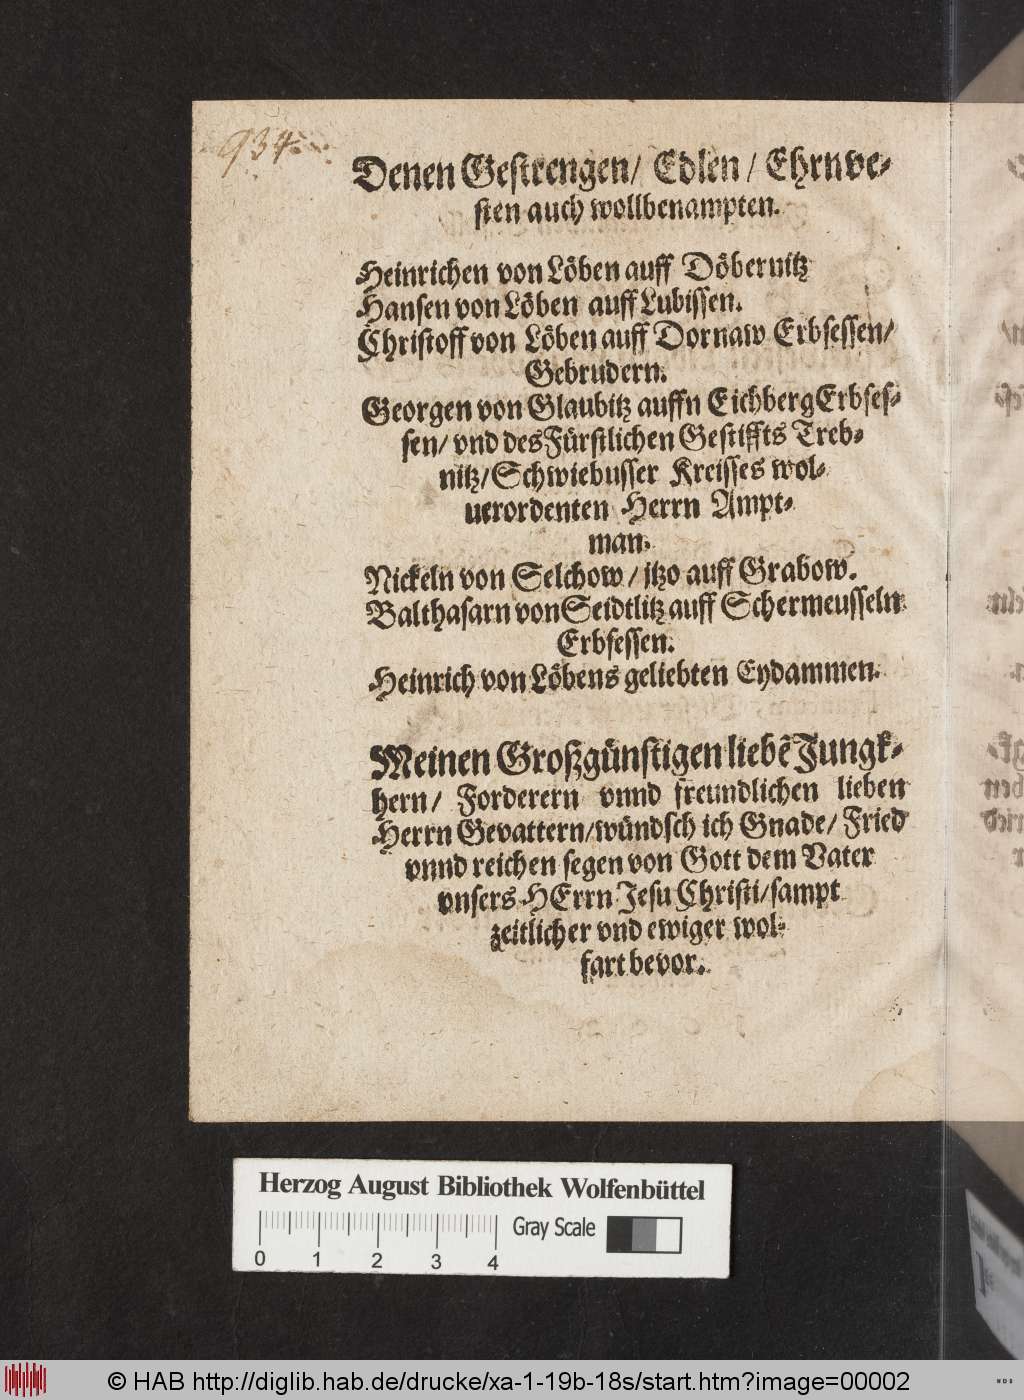 934.
Denen Gestrengen/ Edlen/ Ehrnve-
sten auch wollbenampten.
Heinrichen von Löben auff Döbernitz
Hansen von Löben auff Lubissen.
Christoff von Löben auff Dornaw Erbsessen/
Gebrudern.
Georgen von Glaubitz auffn Eichberg Erbses-
sen/ vnd des Fürstlichen Gestiffts Treb-
nitz/ Schwiebusser Kreisses wol-
uerordenten Herrn Ampt-
man.
Nickeln von Selchow/ itzo auff Grabow.
Balthasarn von Seidtlitz auff Schermeusseln
Erbsessen.
Heinrich von Löbens geliebten Eydammen.
Meinen Großgünstigen liebẽ Jungk-
hern/ Forderern vnnd freundlichen lieben
Herrn Gevattern/ wündsch ich Gnade/ Fried
vnnd reichen segen von Gott dem Vater
vnsers HErrn Jesu Christi/ sampt
zeitlicher vnd ewiger wol-
fart bevor.
Herzog August Bibliothek Wolfenbüttel
Gray Scale
0 1 2 3 4
© HAB http://diglib.hab.de/drucke/xa-1-19b-18s/start.htm?image=00002